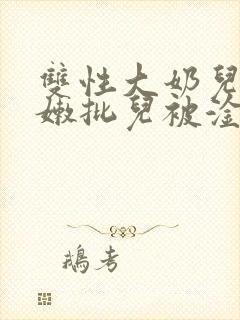 雙性大奶兒
嫩批兒被淦
鵝考